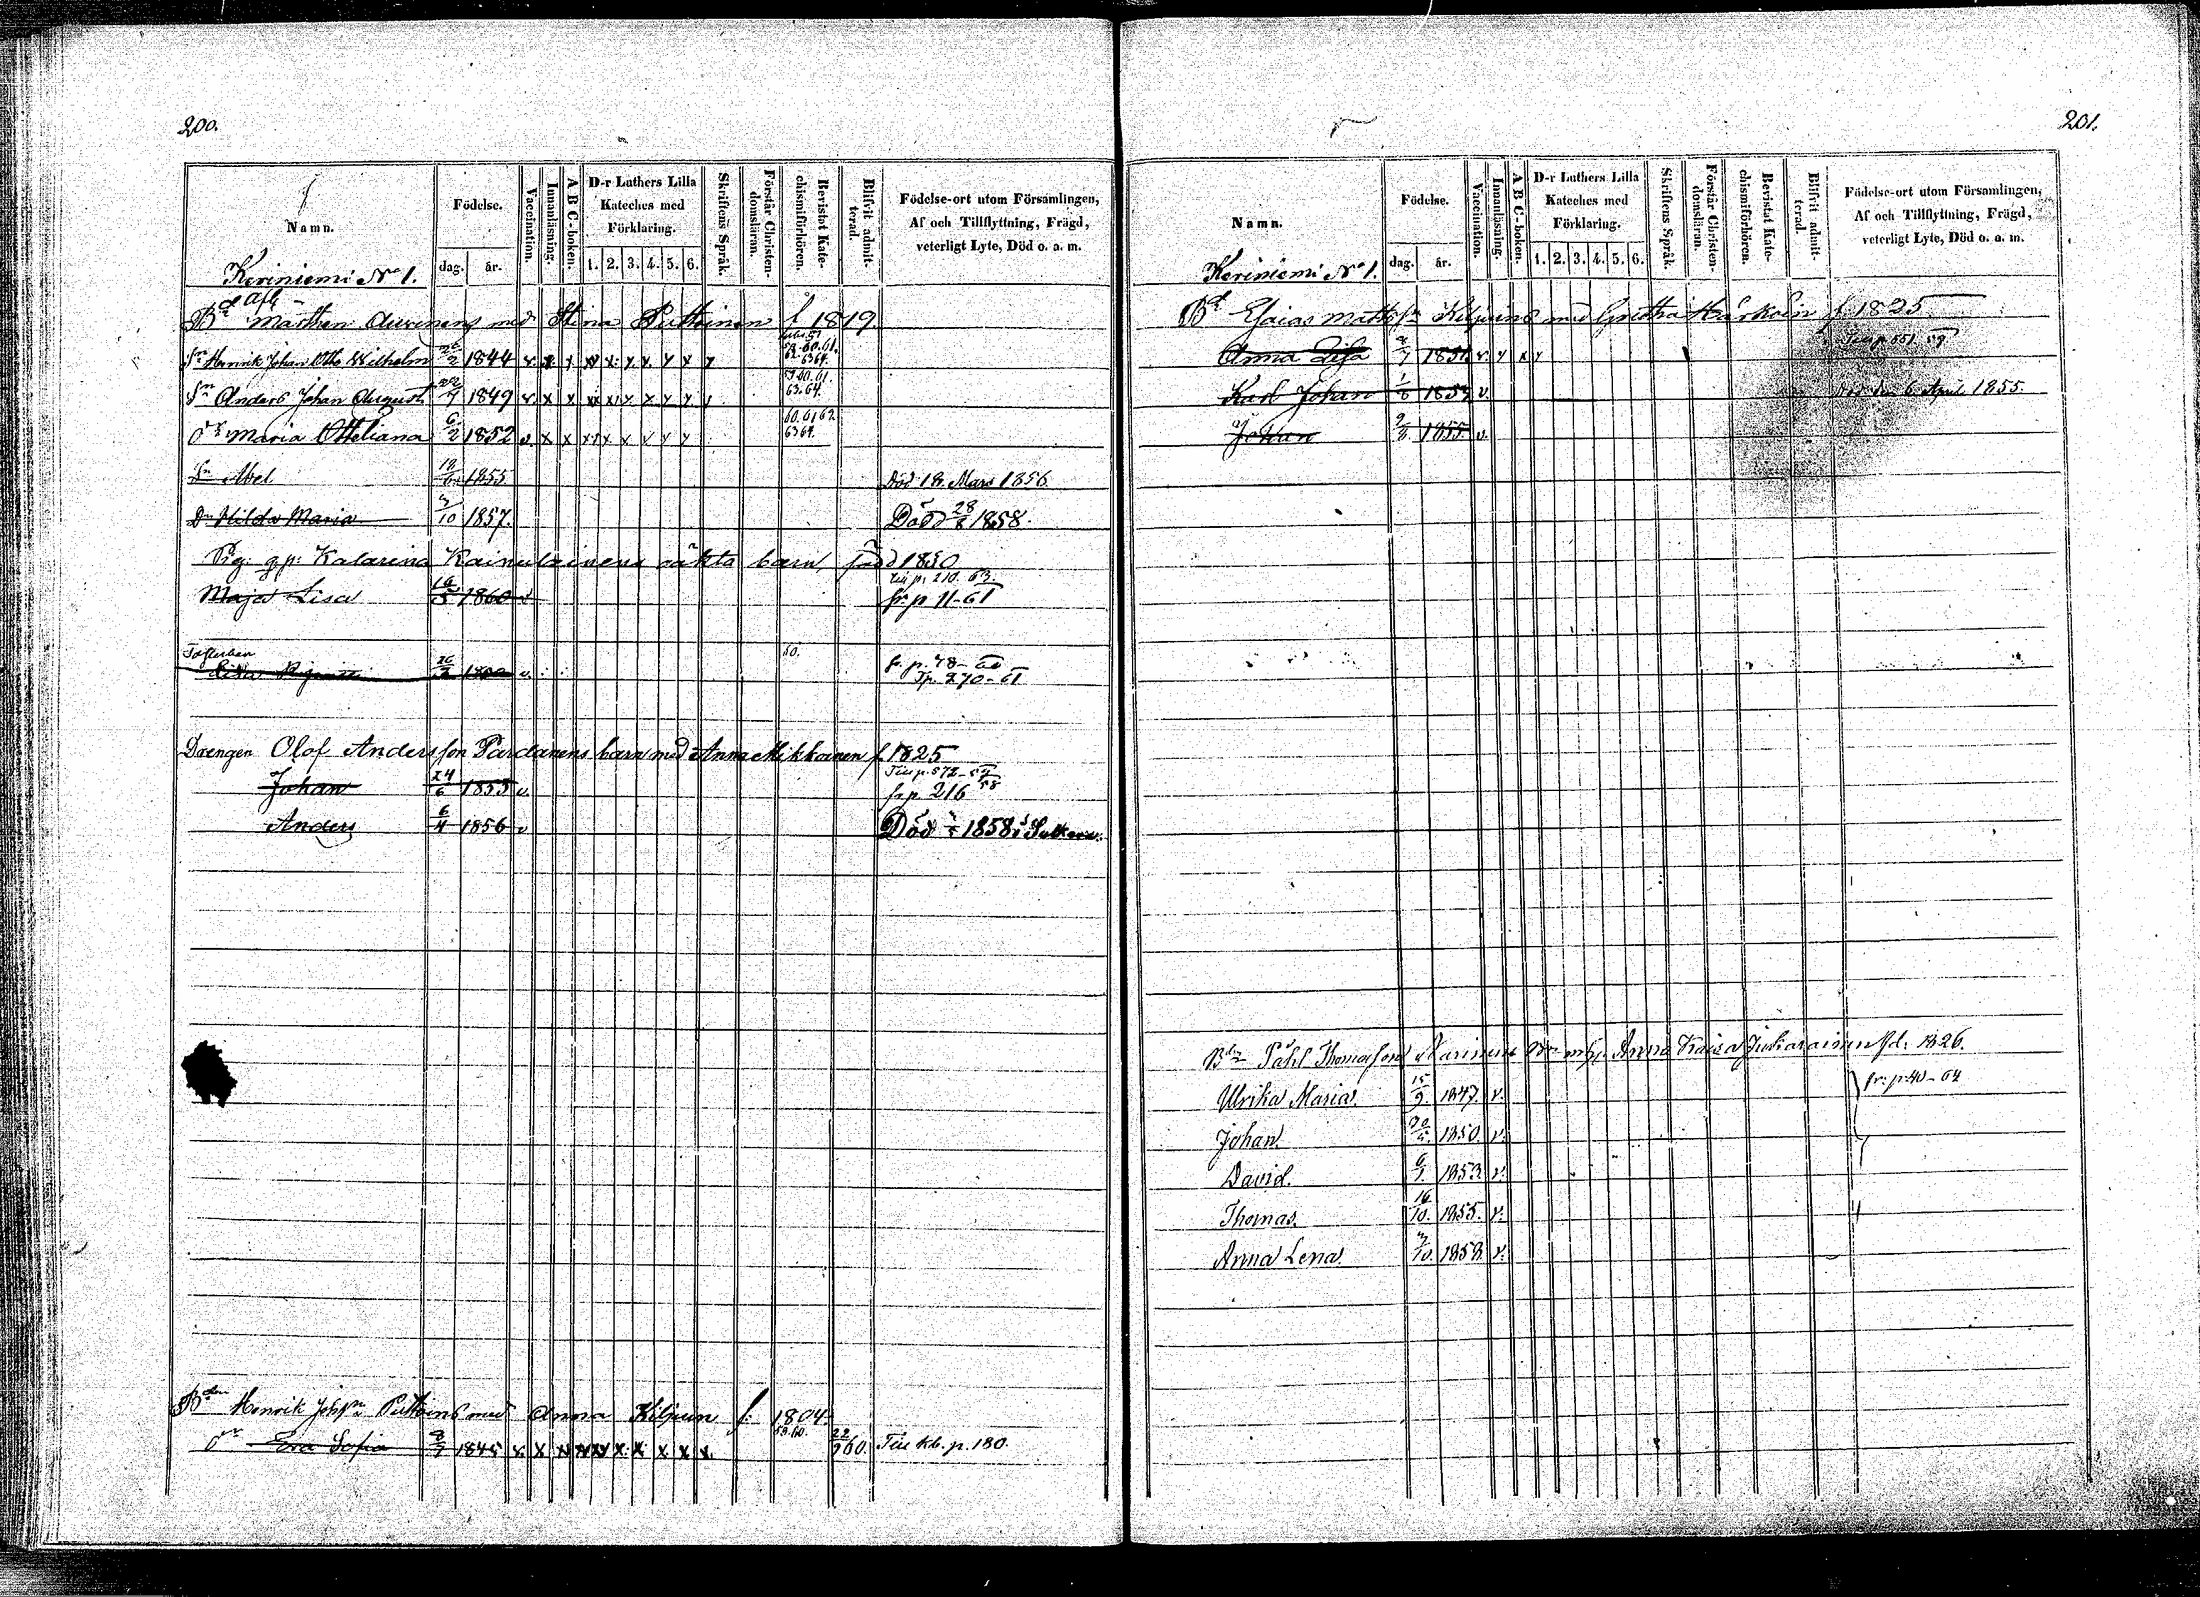 200.
Namn.
Födelse.
dag. år.
Vaccination.
Innanläsning.
A B C-boken.
D-r Luthers Lilla Kateches med Förklaring.
1. 2. 3. 4. 5. 6.
Skriftens Språk.
Förstår Christendomsläran.
Bevistat Katechismiförhören.
Blifvit admitterad.
Födelse-ort utom Församlingen, Af och Tillflyttning, Frägd, veterligt Lyte, Död o. a. m.
Keriniemi No 1.
med Stina Puttoinen f 1819.
Sn Henrik Johan Otto Wilhelm 2 1844 v. x x xx x. x. x. x x x
Sn Anders Johan August 7 1849 v. x x xx x x x x x. 59.60.61. 63.64.
Dr Maria Otteliana 6/2 1852 v. x x xx x x x x x 60.61.62. 63 64.
Sn Abel 18/6 1855 Död 18. Mars 1856.
Dr Hilda Maria 3/10 1857. Död 28/8 1858.
Pig. gp: Katarina Kainulainens oäkta barn, född 1830
Maja Lisa 16/5 1860 v Till p. 210. 63.
fr. p 11-61
60. f. p. 78-60
Tp. 270-61
Drengen Olof Andersson Pardanens barn med Anna Mikkoinen f. 1825
Johan 24/6 1853 v. Till p. 572-57
fr p. 216 58
Anders 6/4 1856 v Död 1858 i
Bden Henrik Johsn Puttoins med Anna Kiljun f: 1804
Dr Eva Sofia 8/7 1845 v. x x xx x x x x x. 59.60. 22/9 60. Till kb. p. 180.
201.
Namn.
Födelse.
dag. år.
Vaccination.
Innanläsning.
A B C-boken.
D-r Luthers Lilla Kateches med Förklaring.
1. 2. 3. 4. 5. 6.
Skriftens Språk.
Förstår Christendomsläran.
Bevistat Katechismiförhören.
Blifvit admitterad.
Födelse-ort utom Församlingen, Af och Tillflyttning, Frägd, veterligt Lyte, Död o. a. m.
Keriniemi No 1.
Esaias Mattsn Kiljuins med Gretha Härkoin f. 1825
Anna Lisa 1851 v. x x x Till p. 551. 59
Karl Johan 1/8 1853 v. Död den 6. April 1855.
Johan 9/8 1855. v.
Påhl Thomasson Anna Kaisa fd. 1826.
Ulrika Maria. 15/9. 1847. v. fr: p: 40-64
Johan. 1850. v.
David. 6/1. 1853. v.
Thomas. 16/10. 1855. v.
Anna Lena. 3/10. 1858. v.